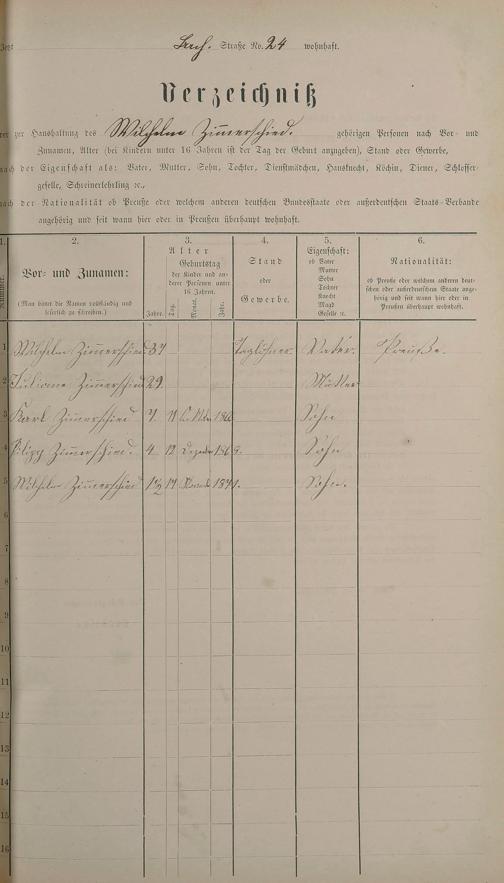 Jetzt Bach. Straße No. 24 wohnhaft.
Verzeichniß
der zur Haushaltung des Wilhelm Zimmerschied. gehörigen Personen nach Vor- und
Zunamen, Alter (bei Kindern unter 16 Jahren ist der Tag der Geburt anzugeben), Stand oder Gewerbe,
nach der Eigenschaft als: Vater, Mutter, Sohn, Tochter, Dienstmädchen, Hausknecht, Köchin, Diener, Schlosser-
geselle, Schreinerlehrling ꝛc.,
nach der Nationalität ob Preuße oder welchem anderen deutschen Bundesstaate oder außerdeutschen Staats-Verbande
angehörig und seit wann hier oder in Preußen überhaupt wohnhaft.
1. 2. 3. 4. 5. 6.
Nummer.
Vor- und Zunamen:
(Man bittet die Namen vollständig und
leserlich zu schreiben.)
Alter
Geburtstag
der Kinder und an-
derer Personen unter
16 Jahren.
Jahre. Tag. Monat. Jahr.
Stand
oder
Gewerbe.
Eigenschaft:
ob Vater
Mutter
Sohn
Tochter
Knecht
Magd
Geselle ꝛc.
Nationalität:
ob Preuße oder welchem anderen deut-
schen oder außerdeutschem Staate ange-
hörig und seit wann hier oder in
Preußen überhaupt wohnhaft.
1 Wilhelm Zimmerschied 37 Taglöhner. Vater. Preuße.
2 Juliane Zimmerschied 29 Mutter
3 Karl Zimmerschied 7 11 Sohn
4 Philipp Zimmerschied. 4 12 Dezember 1868. Sohn
5 Wilhelm Zimmerschied 1½ 17 1871. Sohn.
6
7
8
9
10
11
12
13
14
15
16